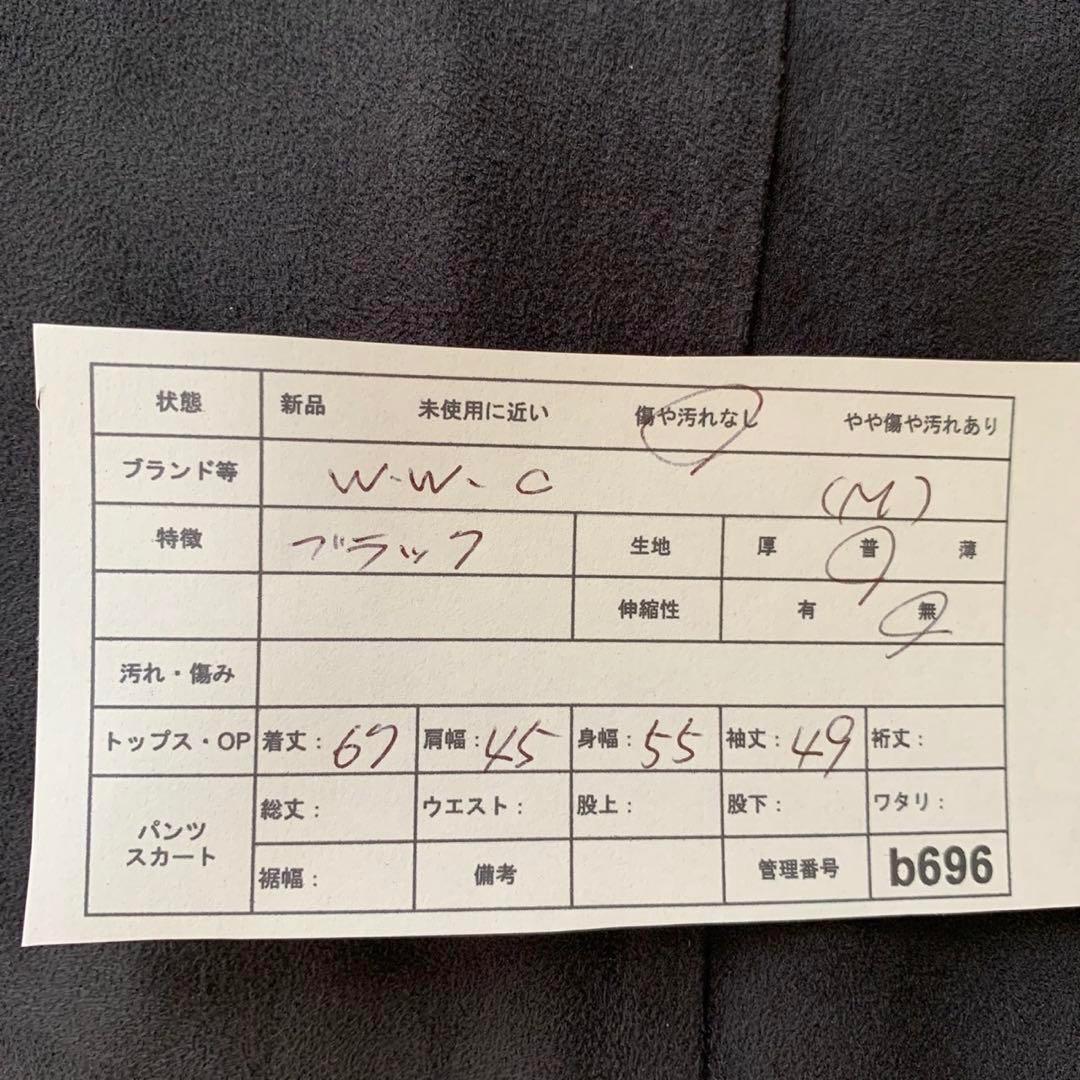 状態 新品 未使用に近い 傷や汚れなし やや傷や汚れあり
ブランド等 W.W.C (M)
特徴 ブラック 生地 厚 普 薄
伸縮性 有 無
汚れ・傷み
トップス・OP 着丈: 67 肩幅: 45 身幅: 55 袖丈: 49 裄丈:
パンツ スカート 総丈: ウエスト: 股上: 股下: ワタリ:
裾幅: 備考 管理番号 b696